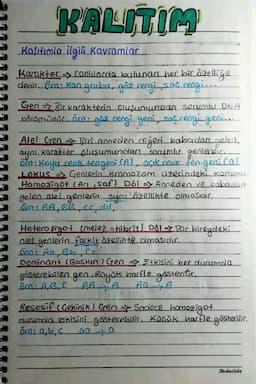 KALITIM
Kalıtımla ilgili Kavramlar
Karakter → Canlılarda bulunan her bir özelliğe
denir. Örn: Kan grubu, göz rengi, saç rengi...
Gen → Bir karakterin oluşumundan sorumlu DNA
bölümüdür. örn: göz rengi geni, saç rengi geni...
Alel Gen → Biri anneden diğeri babadan gelen,
aynı karakter oluşumundan sorumlu genlerdir.
Örn: Koyu renk ten geni (A), açık renk ten geni (a)
Lokus → Genlerin kromozom üzerindeki konumu
Homozigot (Arı, saf) Döl → Anneden ve babadan
gelen alel genlerin aynı özellikte olmasıdır.
Örn: AA, BB, cc, dd,
Heterozigot (melez, hibrit) Döl → Bir bireydeki
alel genlerin farklı özellikte olmasıdır.
Örn: Aa, Bb, Cc
Dominant (Baskın) Gen → Etkisini her durumda
gösterebilen gen. Büyük harfle gösterilir.
Örn: A, B, C AA → A Aa → A
Resesif (Çekinik) Gen → Sadece homozigot
durumda etkisini gösterebilir. Küçük harfle gösterilir.
Örn: a, b, c aa → a